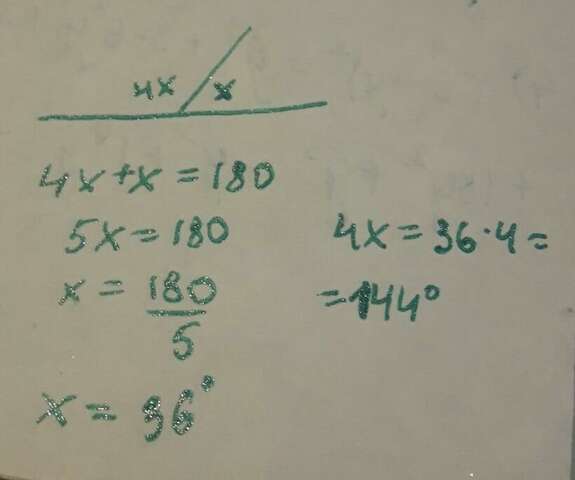 4x x
4x+x=180
5x=180
x=180/5
x=36°
4x=36·4=
=144°